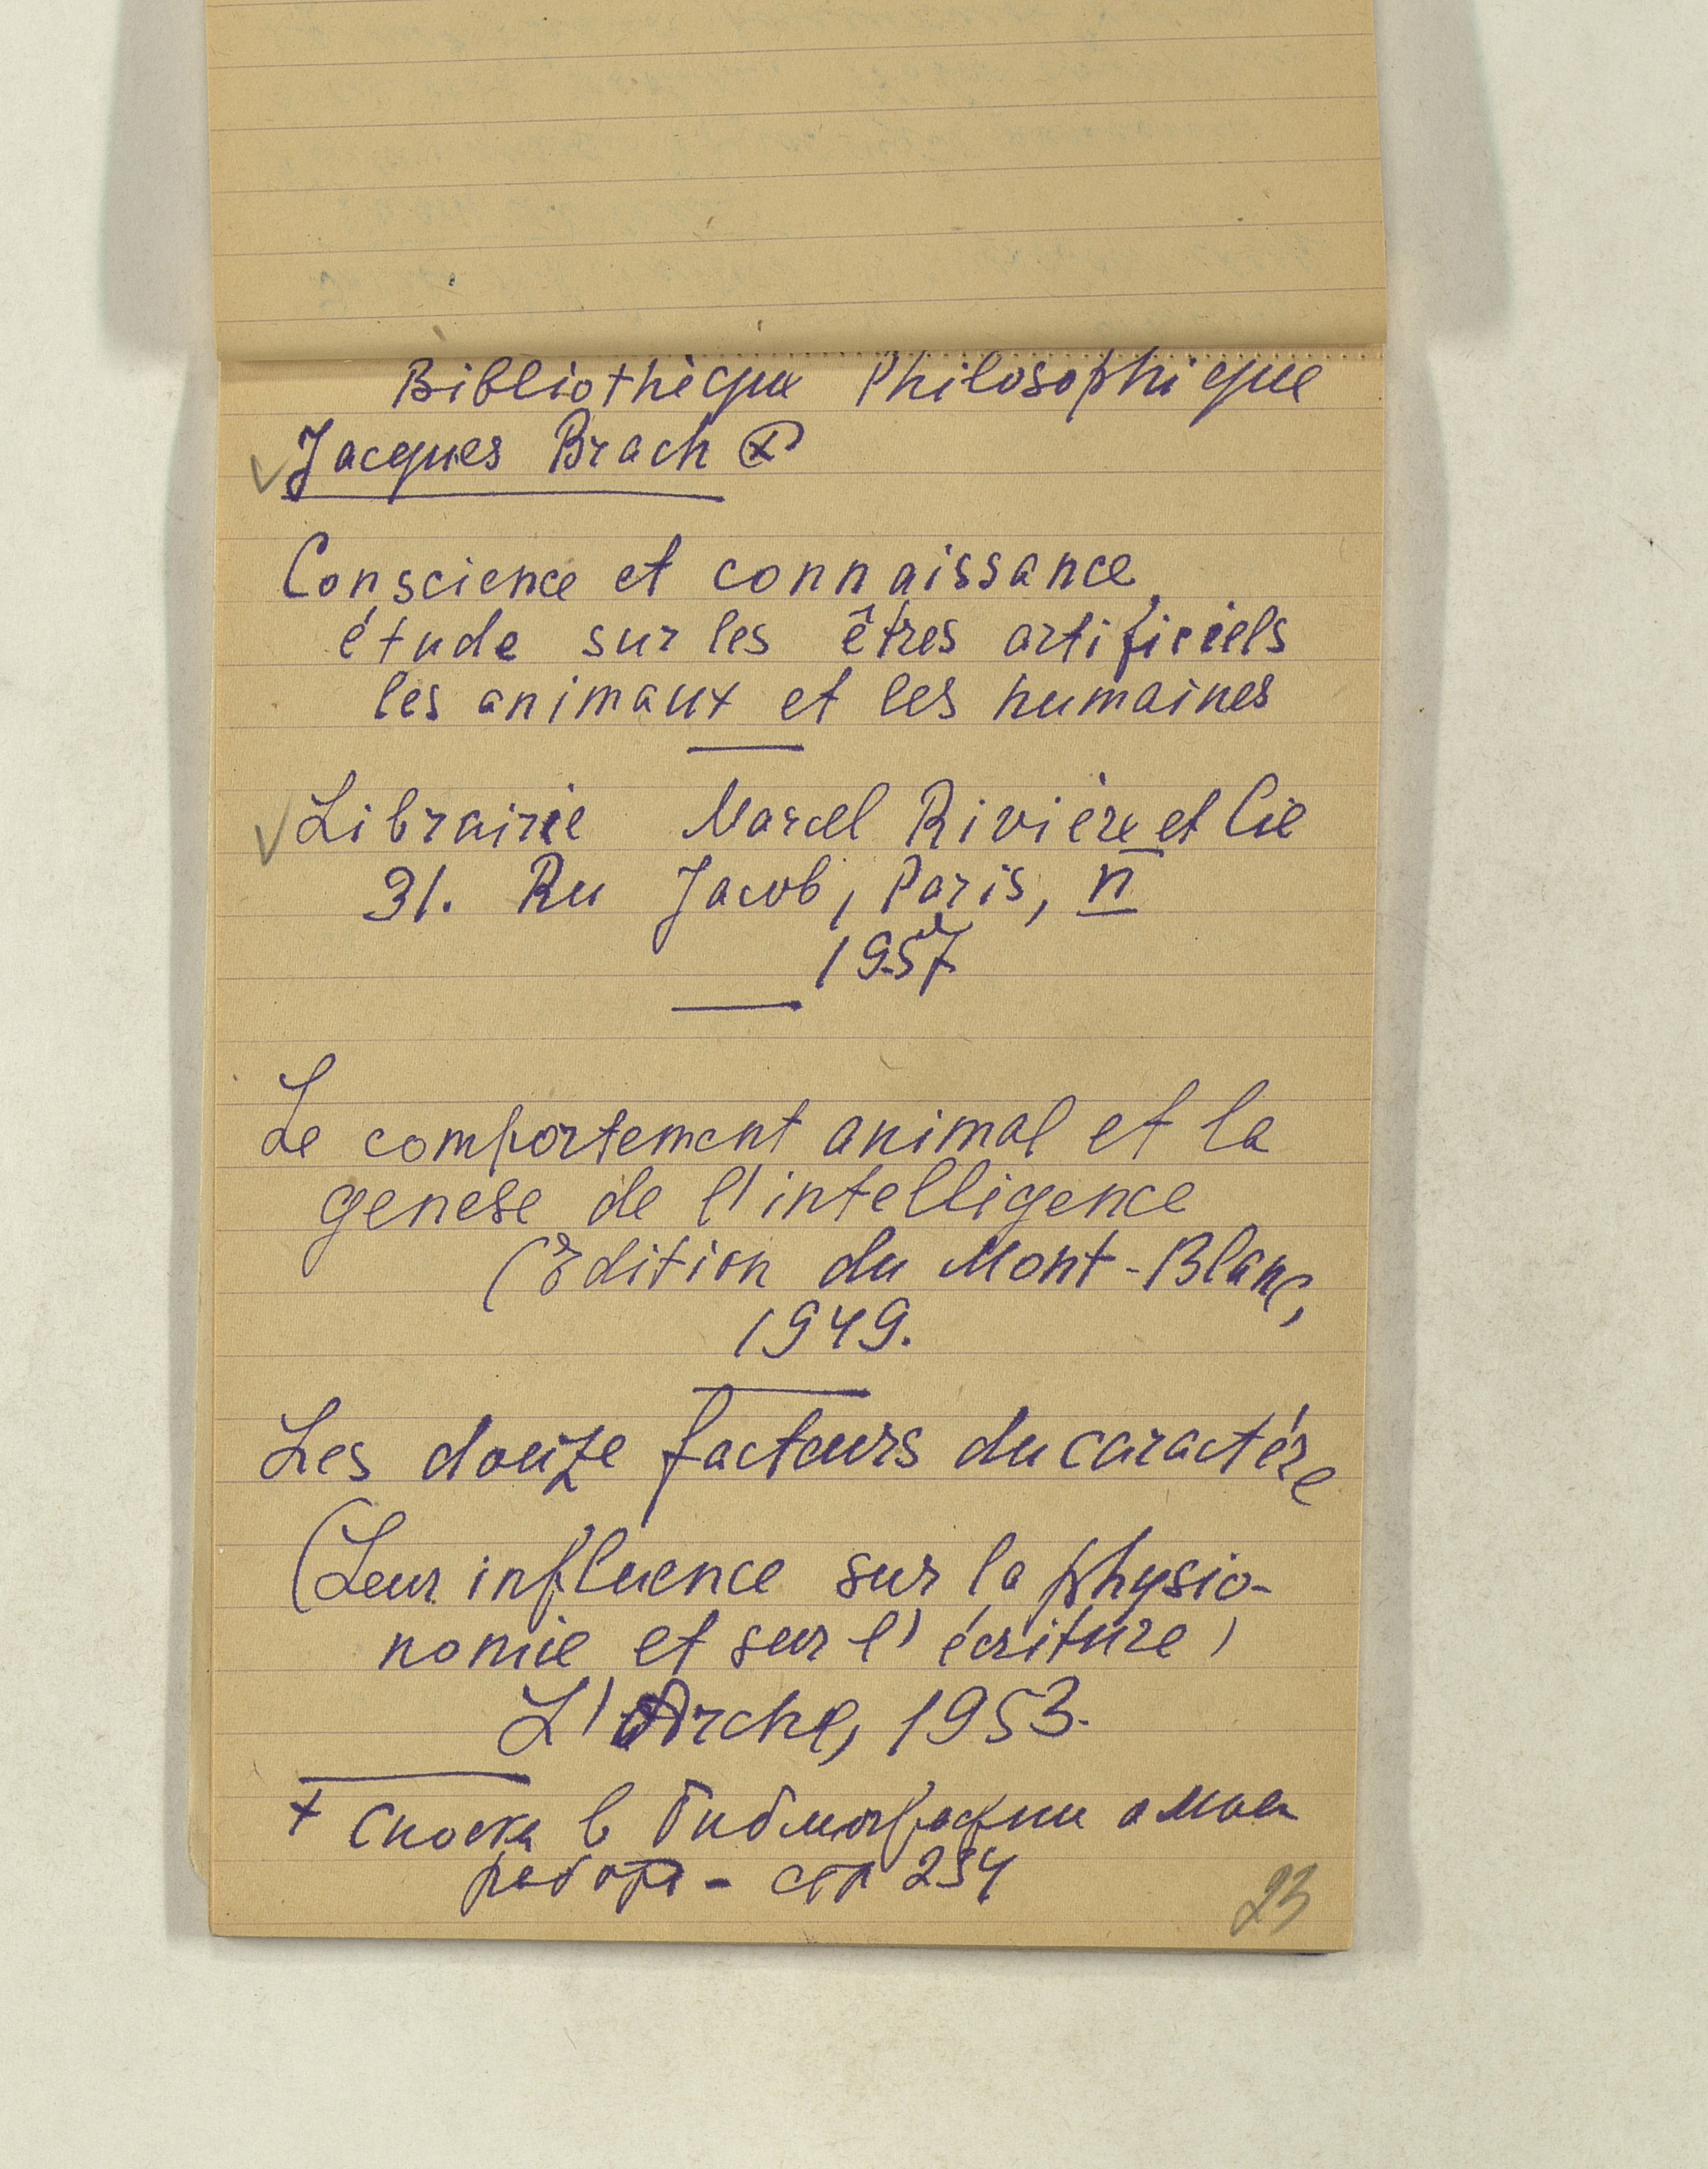 Bibliothèque Philosophique
Jacques Brach
Conscience et connaissance
étude sur les êtres artificiels
les animaux et les humaines
Librairie Marcel Rivière et Cie
31. Ru Jacob, Paris,
1957
Le comportement animal et la
genese de l'intelligence
(Edition du Mont-Blanc,
1949.
Les douze facteurs du caractére
(Leur influence sur la physio-
nomie et sur l'écriture)
L'Arche, 1953.
+ Сноска в библиографии о моей
работе - стр 234
23